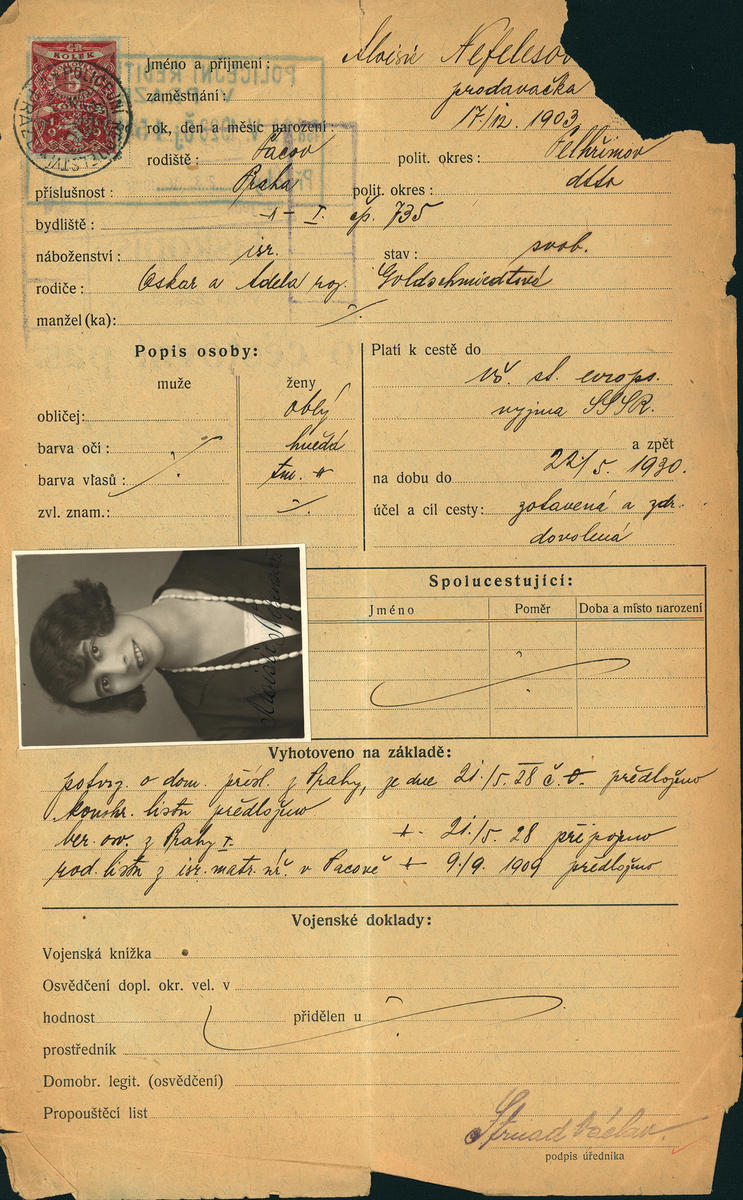 KOLEK
Jméno a příjmení: Aloisie Nefelesov
zaměstnání: prodavačka
rok, den a měsíc narození: 17./12. 1903
rodiště: Pacov polit. okres: Pelhřimov
příslušnost: Praha polit. okres: dtto
bydliště: -"- I. čp. 735
náboženství: isr. stav: svob.
rodiče: Oskar a Adela roz. Goldschmiedtová
manžel (ka):
Popis osoby: Platí k cestě do
muže ženy vš. st. evrops.
obličej: oblý vyjma SSSR.
barva očí: hnědá a zpět
barva vlasů: tm. -"- na dobu do 22/5. 1930.
zvl. znam.: účel a cíl cesty: zotavená a zdr.
dovolená
Spolucestující:
Jméno Poměr Doba a místo narození
Vyhotoveno na základě:
potvrz. o dom. přísl. z Prahy, ze dne 21./5. 28 č. 0. předloženo
listu předloženo
ber. osv. z Prahy I. -"- 21./5. 28 připojeno
rod. listu z isr. matr. v Pacově -"- 9./9. 1909 předloženo
Vojenské doklady:
Vojenská knížka
Osvědčení dopl. okr. vel. v
hodnost přidělen u
prostředník
Domobr. legit. (osvědčení)
Propouštěcí list
Strnad Václav.
podpis úředníka